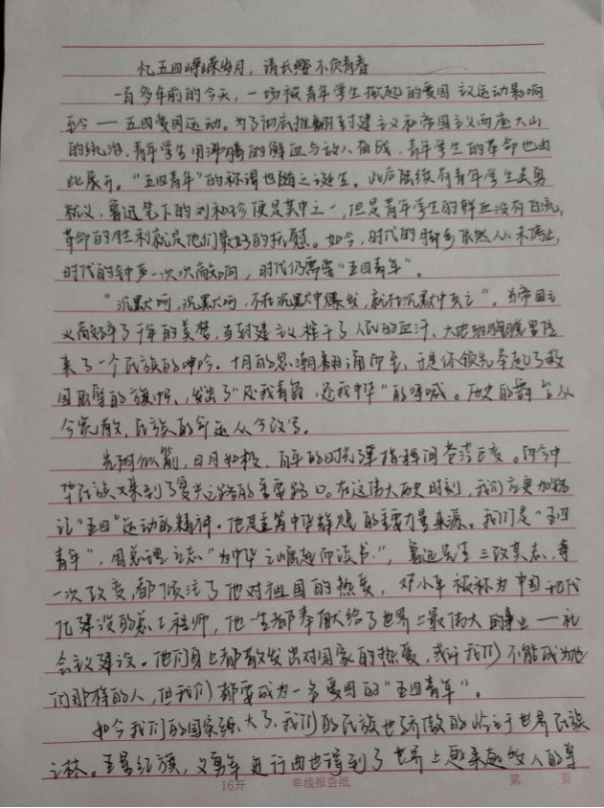 忆五四峥嵘岁月，请长缨不负青春
一百多年前的今天，一场被青年学生掀起的爱国主义运动影响
至今——五四爱国运动。为了彻底推翻封建主义和帝国主义两座大山
的统治，青年学生用沸腾的鲜血与敌人奋战，青年学生的革命也由
此展开。"五四青年"的称谓也随之诞生。此后陆续有青年学生英勇
就义，鲁迅笔下的刘和珍便是其中之一，但是青年学生的鲜血没有白流，
革命的胜利就是他们最好的抚慰。如今，时代的脚步依然从未停止，
时代的钟声一次次敲响，时代仍需要"五四青年"。
"沉默呵，沉默呵，不在沉默中爆发，就在沉默中灭亡"。当帝国主
义敲碎了千年的美梦，当封建主义榨干了人民的血汗，大地的胸膛里
来了一个民族的呻吟。十月的思潮翻涌而至，于是你领先举起了救
国的旗帜，发出了"还我青岛，还我中华"的呼喊。历史的舞台从
今完敞，民族的命运从今改写。
光阴似箭，日月如梭，百年的时光里指挥间苍茫巨变。如今中
华民族又来到了复兴之路的重要路口。在这伟大历史时刻，我们应更加铭
记"五四"运动的精神。他是在铸中华辉煌的重要力量来源。我们是"五四
青年"，周总理立志"为中华之崛起而读书"，鲁迅先生三改其志，每
一次改变都倾注了他对祖国的热爱，邓小平被称为中国现代
化建设的总工程师，他一生都奉献给了世界上最伟大的事业——社
会主义建设。他们身上都散发出对国家的热爱，或许我们不能成为他
们那样的人，但我们都要成为一名爱国的"五四青年"。
如今我们的国家强大了，我们的民族也骄傲的屹立于世界民族
之林。五星红旗，义勇军进行曲也得到了世界上越来越多人的尊
16开 单线报告纸 第 页